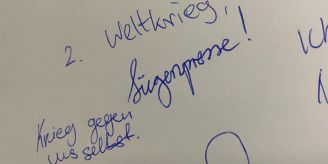 2. Weltkrieg,
Lügenpresse!
Ich
Krieg gegen
uns selbst.